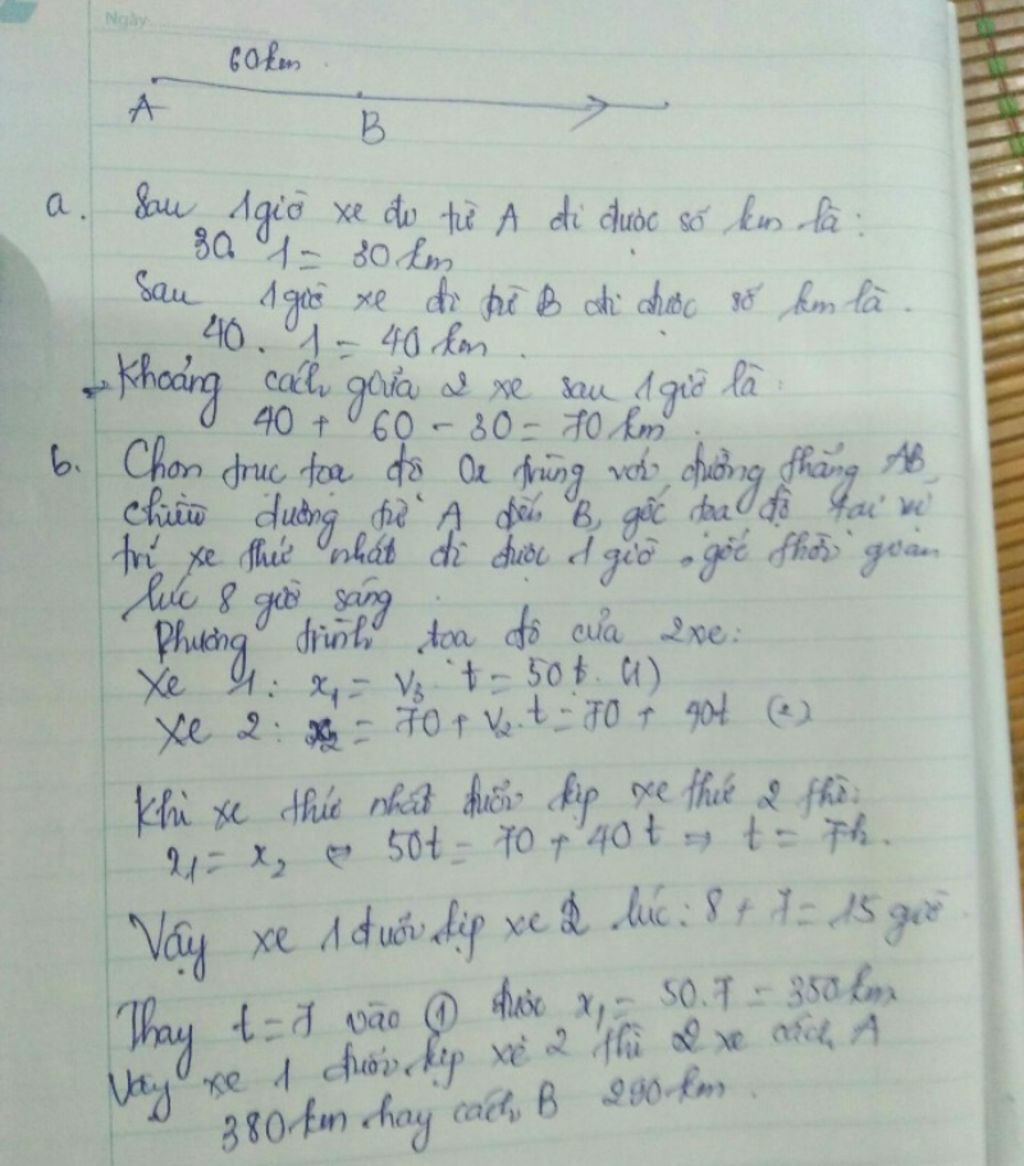 Ngày
60km
A
B
a. Sau 1 giờ xe đi từ A đi được số km là:
30. 1 = 30 km
Sau 1 giờ xe đi từ B đi được số km là.
40. 1 = 40 km.
Khoảng cách giữa 2 xe sau 1 giờ là:
40 + 60 - 30 = 70 km.
b. Chọn trục tọa độ Ox trùng với đường thẳng AB,
chiều dương từ A đến B, gốc tọa độ tại vị
trí xe thứ nhất đi được 1 giờ, gốc thời gian
lúc 8 giờ sáng
Phương trình tọa độ của 2 xe:
Xe 1: x₁ = V₃. t = 50t. (1)
Xe 2: x₂ = 70 + V₂. t = 70 + 40t (2)
Khi xe thứ nhất đuổi kịp xe thứ 2 thì:
x₁ = x₂ ⇔ 50t = 70 + 40t ⇒ t = 7h.
Vậy xe 1 đuổi kịp xe 2 lúc: 8 + 7 = 15 giờ
Thay t = 7 vào ① được x₁ = 50.7 = 350 km
Vậy xe 1 đuổi kịp xe 2 thì 2 xe cách A
380 km hay cách B 290 km.